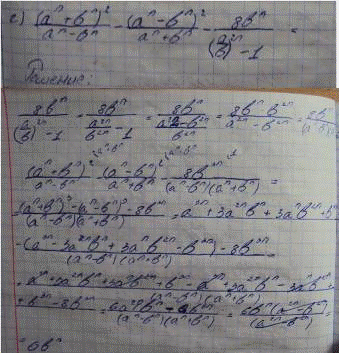 c) (aⁿ+bⁿ)²/(aⁿ-bⁿ) - (aⁿ-bⁿ)²/(aⁿ+bⁿ) - 8bⁿ/((a/b)²ⁿ-1) =
Решение:
8bⁿ/((a/b)²ⁿ-1) = 8bⁿ/(a²ⁿ/b²ⁿ-1) = 8bⁿ/((a²ⁿ-b²ⁿ)/b²ⁿ) = 8bⁿ·b²ⁿ/(a²ⁿ-b²ⁿ) =
(aⁿ+bⁿ)²/(aⁿ-bⁿ) - (aⁿ-bⁿ)²/(aⁿ+bⁿ) - 8b³ⁿ/((aⁿ-bⁿ)(aⁿ+bⁿ)) =
= ((aⁿ+bⁿ)³-(aⁿ-bⁿ)³-8b³ⁿ)/((aⁿ-bⁿ)(aⁿ+bⁿ)) = a³ⁿ+3a²ⁿbⁿ+3aⁿb²ⁿ+b³ⁿ
-(a³ⁿ-3a²ⁿbⁿ+3aⁿb²ⁿ-b³ⁿ)-8b³ⁿ/((aⁿ-bⁿ)(aⁿ+bⁿ))
= a³ⁿ+3a²ⁿbⁿ+3aⁿb²ⁿ+b³ⁿ-a³ⁿ+3a²ⁿbⁿ-3aⁿb²ⁿ+
+b³ⁿ-8b³ⁿ/((aⁿ-bⁿ)(aⁿ+bⁿ)) = (6a²ⁿbⁿ-6b³ⁿ)/((aⁿ-bⁿ)(aⁿ+bⁿ)) = 6bⁿ(a²ⁿ-b²ⁿ)/(a²ⁿ-b²ⁿ)
= 6bⁿ